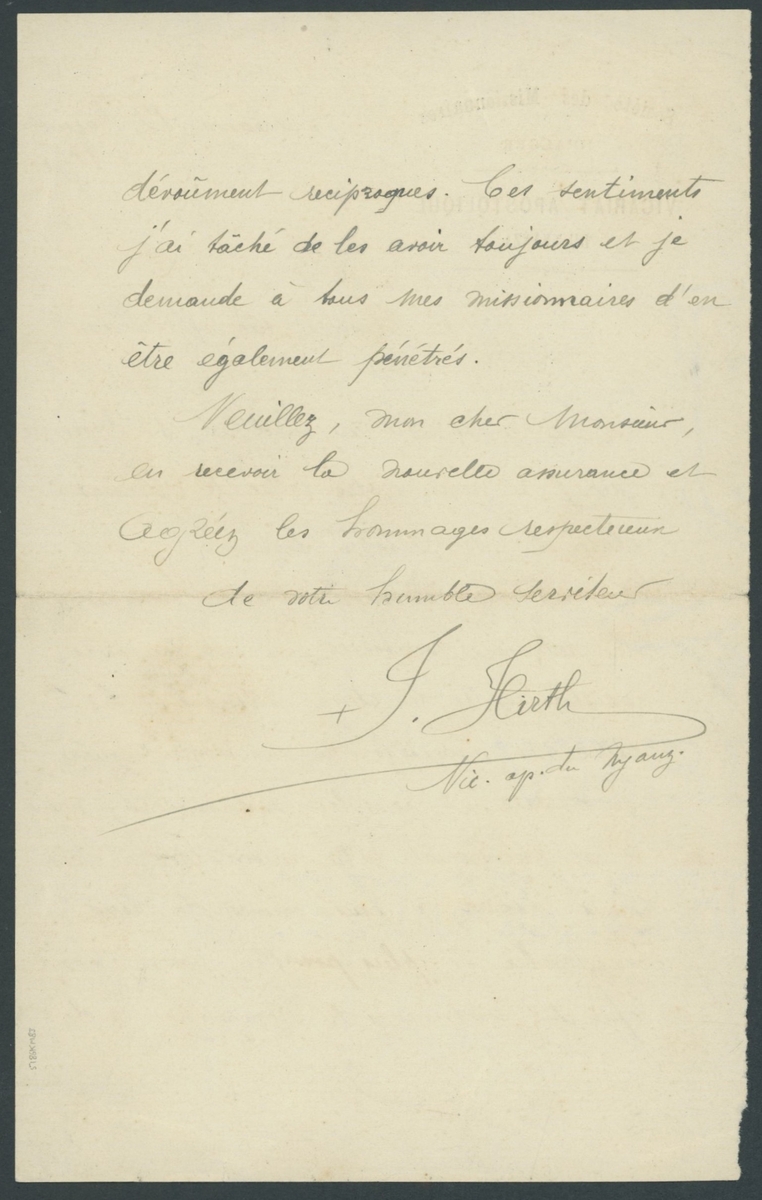 dévoûment reciproques. Ces sentiments
j'ai tâché de les avoir toujours et je
demande à tous mes missionnaires d'en
être également pénétrés.
Veuillez, mon cher Monsieur,
en recevoir la nouvelle assurance et
Agréez les hommages respectueux
de votre humble serviteur
+ J. Hirth
Vic. ap. du Nyanz.